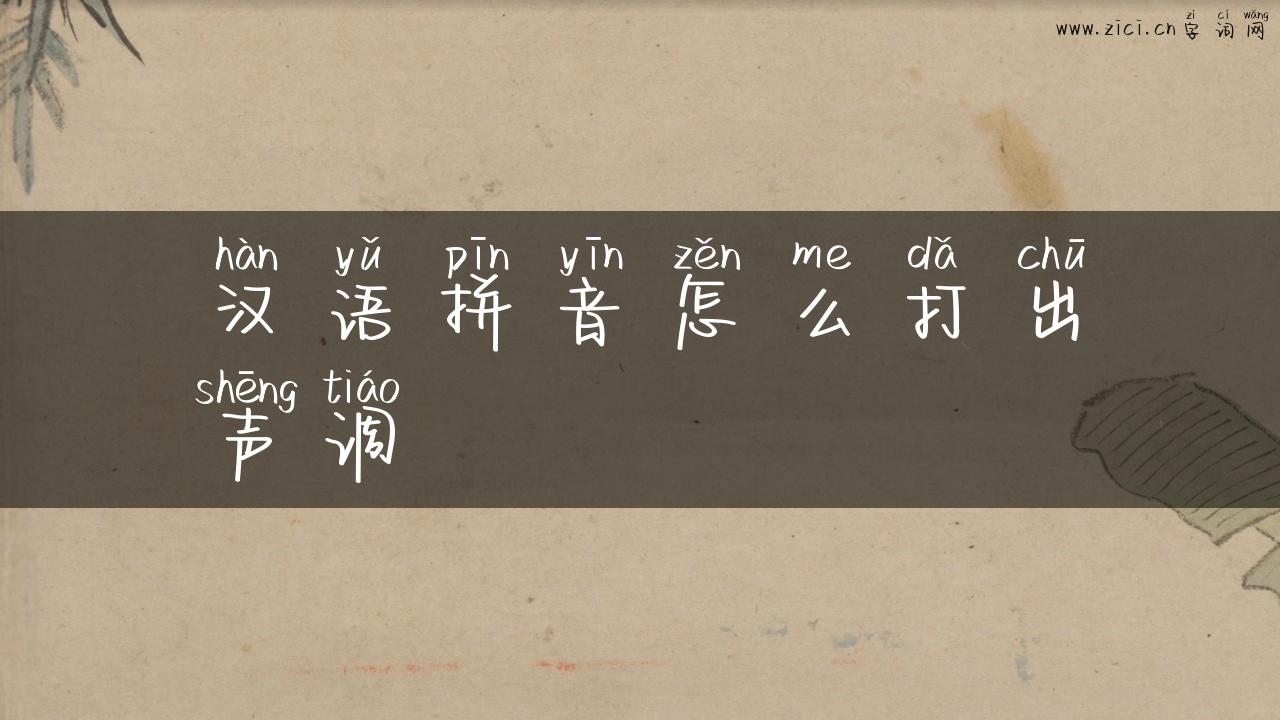 zì cí wǎng
www.zici.cn 字词网
hàn yǔ pīn yīn zěn me dǎ chū
汉语拼音怎么打出
shēng tiáo
声调